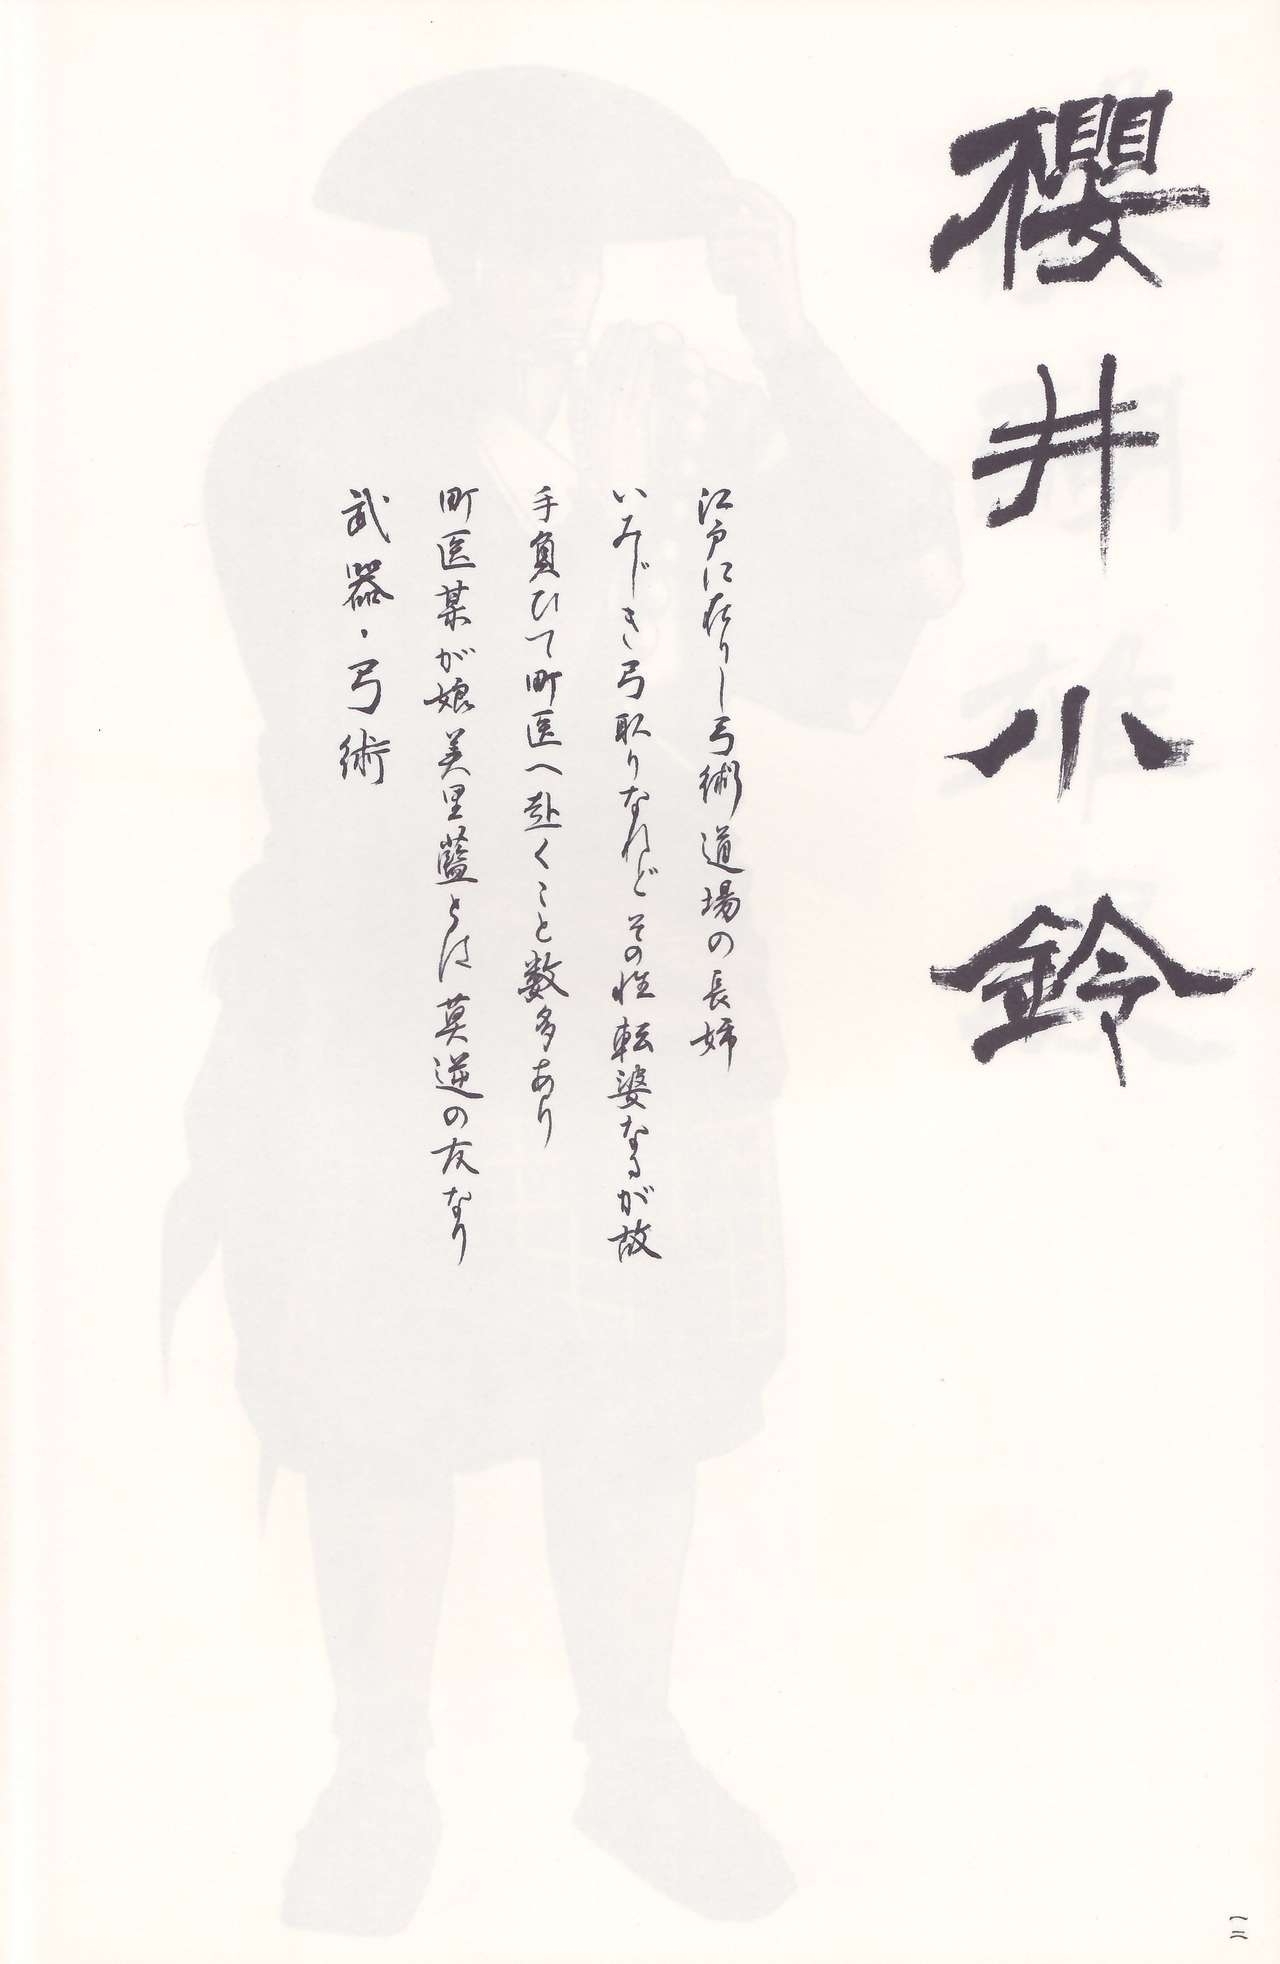 櫻井小鈴
江戸に在りし弓術道場の長姉
いみじき弓取りなれど その性 転婆なるが故
手負ひて町医へ赴くこと数多あり
町医某が娘 美里藍とは 莫逆の友なり
武器・弓術
一二